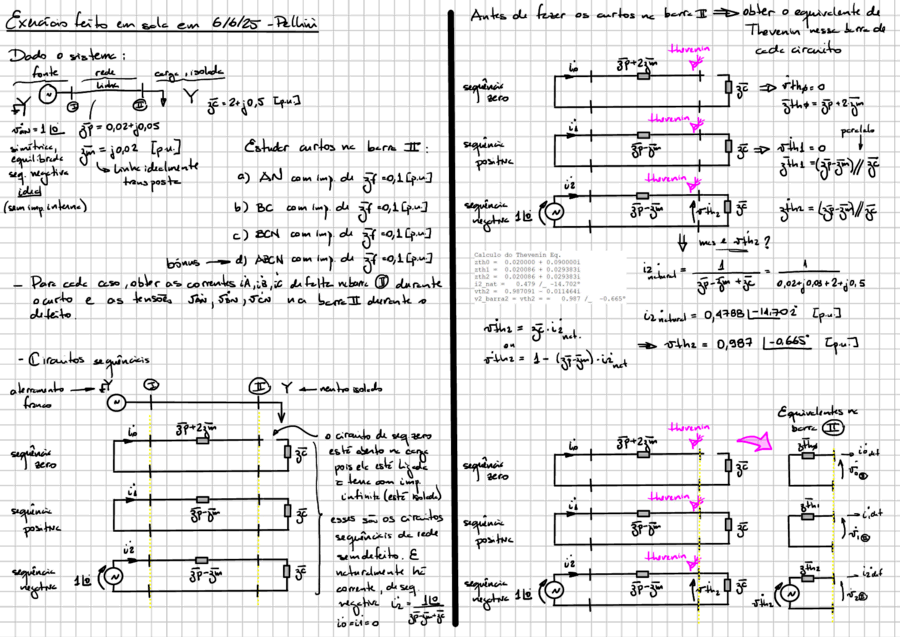 Exercício feito em sala em 6/6/25 - Pellini
Dado o sistema:
fonte rede carga isolada
linha
Y I II Y z̄c = 2+j0,5 [p.u.]
v̇AN = 1|0 z̄p = 0,02+j0,05
simétrica, z̄m = j0,02 [p.u.]
equilibrada
seq. negativa
ideal
(sem imp. interna)
linha idealmente
transposta
Estudar curtos na barra II:
a) AN com imp. de z̄f = 0,1 [p.u.]
b) BC com imp. de z̄f = 0,1 [p.u.]
c) BCN com imp. de z̄f = 0,1 [p.u.]
bônus → d) ABCN com imp. de z̄f = 0,1 [p.u.]
- Para cada caso, obter as correntes iA, iB, iC de falta na barra II durante
o curto e as tensões v̇AN, v̇BN, v̇CN na barra II durante o
defeito.
- Circuitos sequenciais
aterramento
franco
Y I II Y ← neutro isolado
sequência
zero
i̇0 z̄p+2z̄m z̄c
sequência
positiva
i̇1 z̄p-z̄m z̄c
sequência
negativa
1|0 i̇2 z̄p-z̄m z̄c
o circuito de seq. zero
está aberto na carga
pois ela está ligada
à terra com imp.
infinita (está isolada)
esses são os circuitos
sequenciais da rede
sem defeito. E
naturalmente há
corrente, de seq
negativa i̇2 = 1|0 / z̄p-z̄m+z̄c
i̇0 = i̇1 = 0
Antes de fazer os curtos na barra II ⇒ obter o equivalente de
Thevenin nessa barra de
cada circuito
thevenin
sequência
zero
i̇0 z̄p+2z̄m z̄c ⇒ v̇th0 = 0
z̄th0 = z̄p+2z̄m
thevenin
sequência
positiva
i̇1 z̄p-z̄m z̄c ⇒ v̇th1 = 0
paralelo
z̄th1 = (z̄p-z̄m)//z̄c
thevenin
sequência
negativa
1|0 i̇2 z̄p-z̄m v̇th2 z̄c
z̄th2 = (z̄p-z̄m)//z̄c
⇓ mas e v̇th2?
Calculo do Thevenin Eq.
zth0 = 0.020000 + 0.090000i
zth1 = 0.020086 + 0.029383i
zth2 = 0.020086 + 0.029383i
i2_nat = 0.479 /_ -14.702°
vth2 = 0.987091 - 0.011464i
v2_barra2 = vth2 = = 0.987 /_ -0.665°
i̇2 natural = 1 / z̄p-z̄m+z̄c = 1 / 0,02+j0,03+2+j0,5
i̇2 natural = 0,4788 |-14,702° [p.u.]
v̇th2 = z̄c · i̇2 nat.
ou
v̇th2 = 1 - (z̄p-z̄m) · i̇2 nat
⇒ v̇th2 = 0,987 |-0,665° [p.u.]
Equivalentes na
barra II
thevenin
sequência
zero
i̇0 z̄p+2z̄m z̄c
z̄th0 i̇0,def v̇0
thevenin
sequência
positiva
i̇1 z̄p-z̄m z̄c
z̄th1 i̇1,def v̇1
thevenin
sequência
negativa
1|0 i̇2 z̄p-z̄m v̇th2 z̄c
v̇th2 z̄th2 i̇2def v̇2